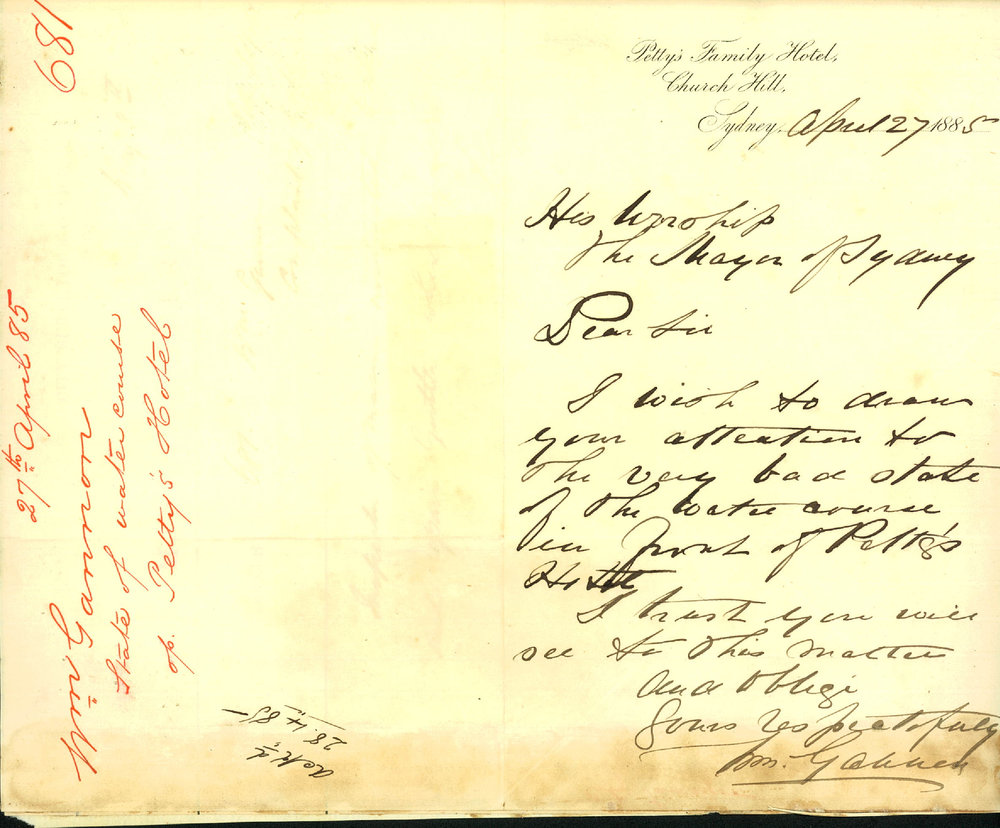 681
27th April 85
Wm Gannon
State of water course
op. Petty's Hotel
Ackd
28.4.85
Petty's Family Hotel,
Church Hill,
Sydney, April 27 1885
His Worship
The Mayor of Sydney
Dear Sir
I wish to draw
your attention to
the very bad state
of the water course
in front of Petty's
Hotel
I trust you will
see to this matter
and oblige
Yours respectfully
Wm. Gannon